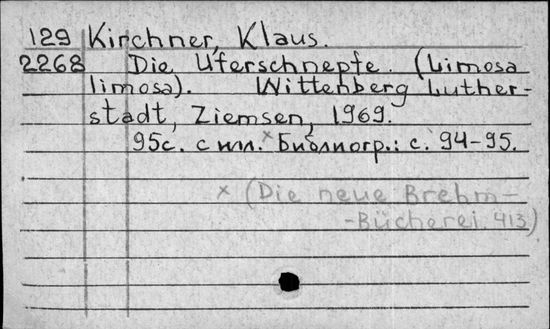 129 Kirchner, Klaus.
2268 Die Uferschnepfe. (Limosa
limosa). Wittenberg Luther-
stadt, Ziemsen, 1969.
95с. с илл. × Библиогр.: с. 94-95.
× (Die neue Brehm-
-Bücherei. 413)